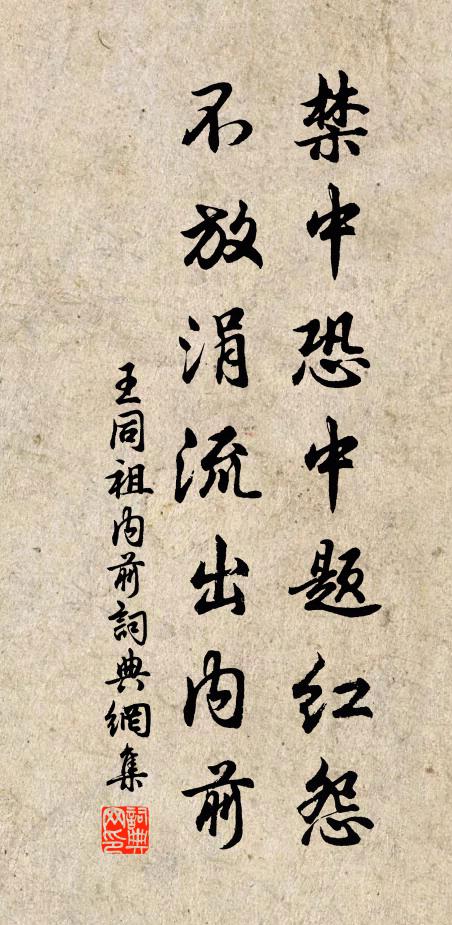 禁中恐中题红怨
不放涓流出内前
王同祖内前詞典網集
詞典网印